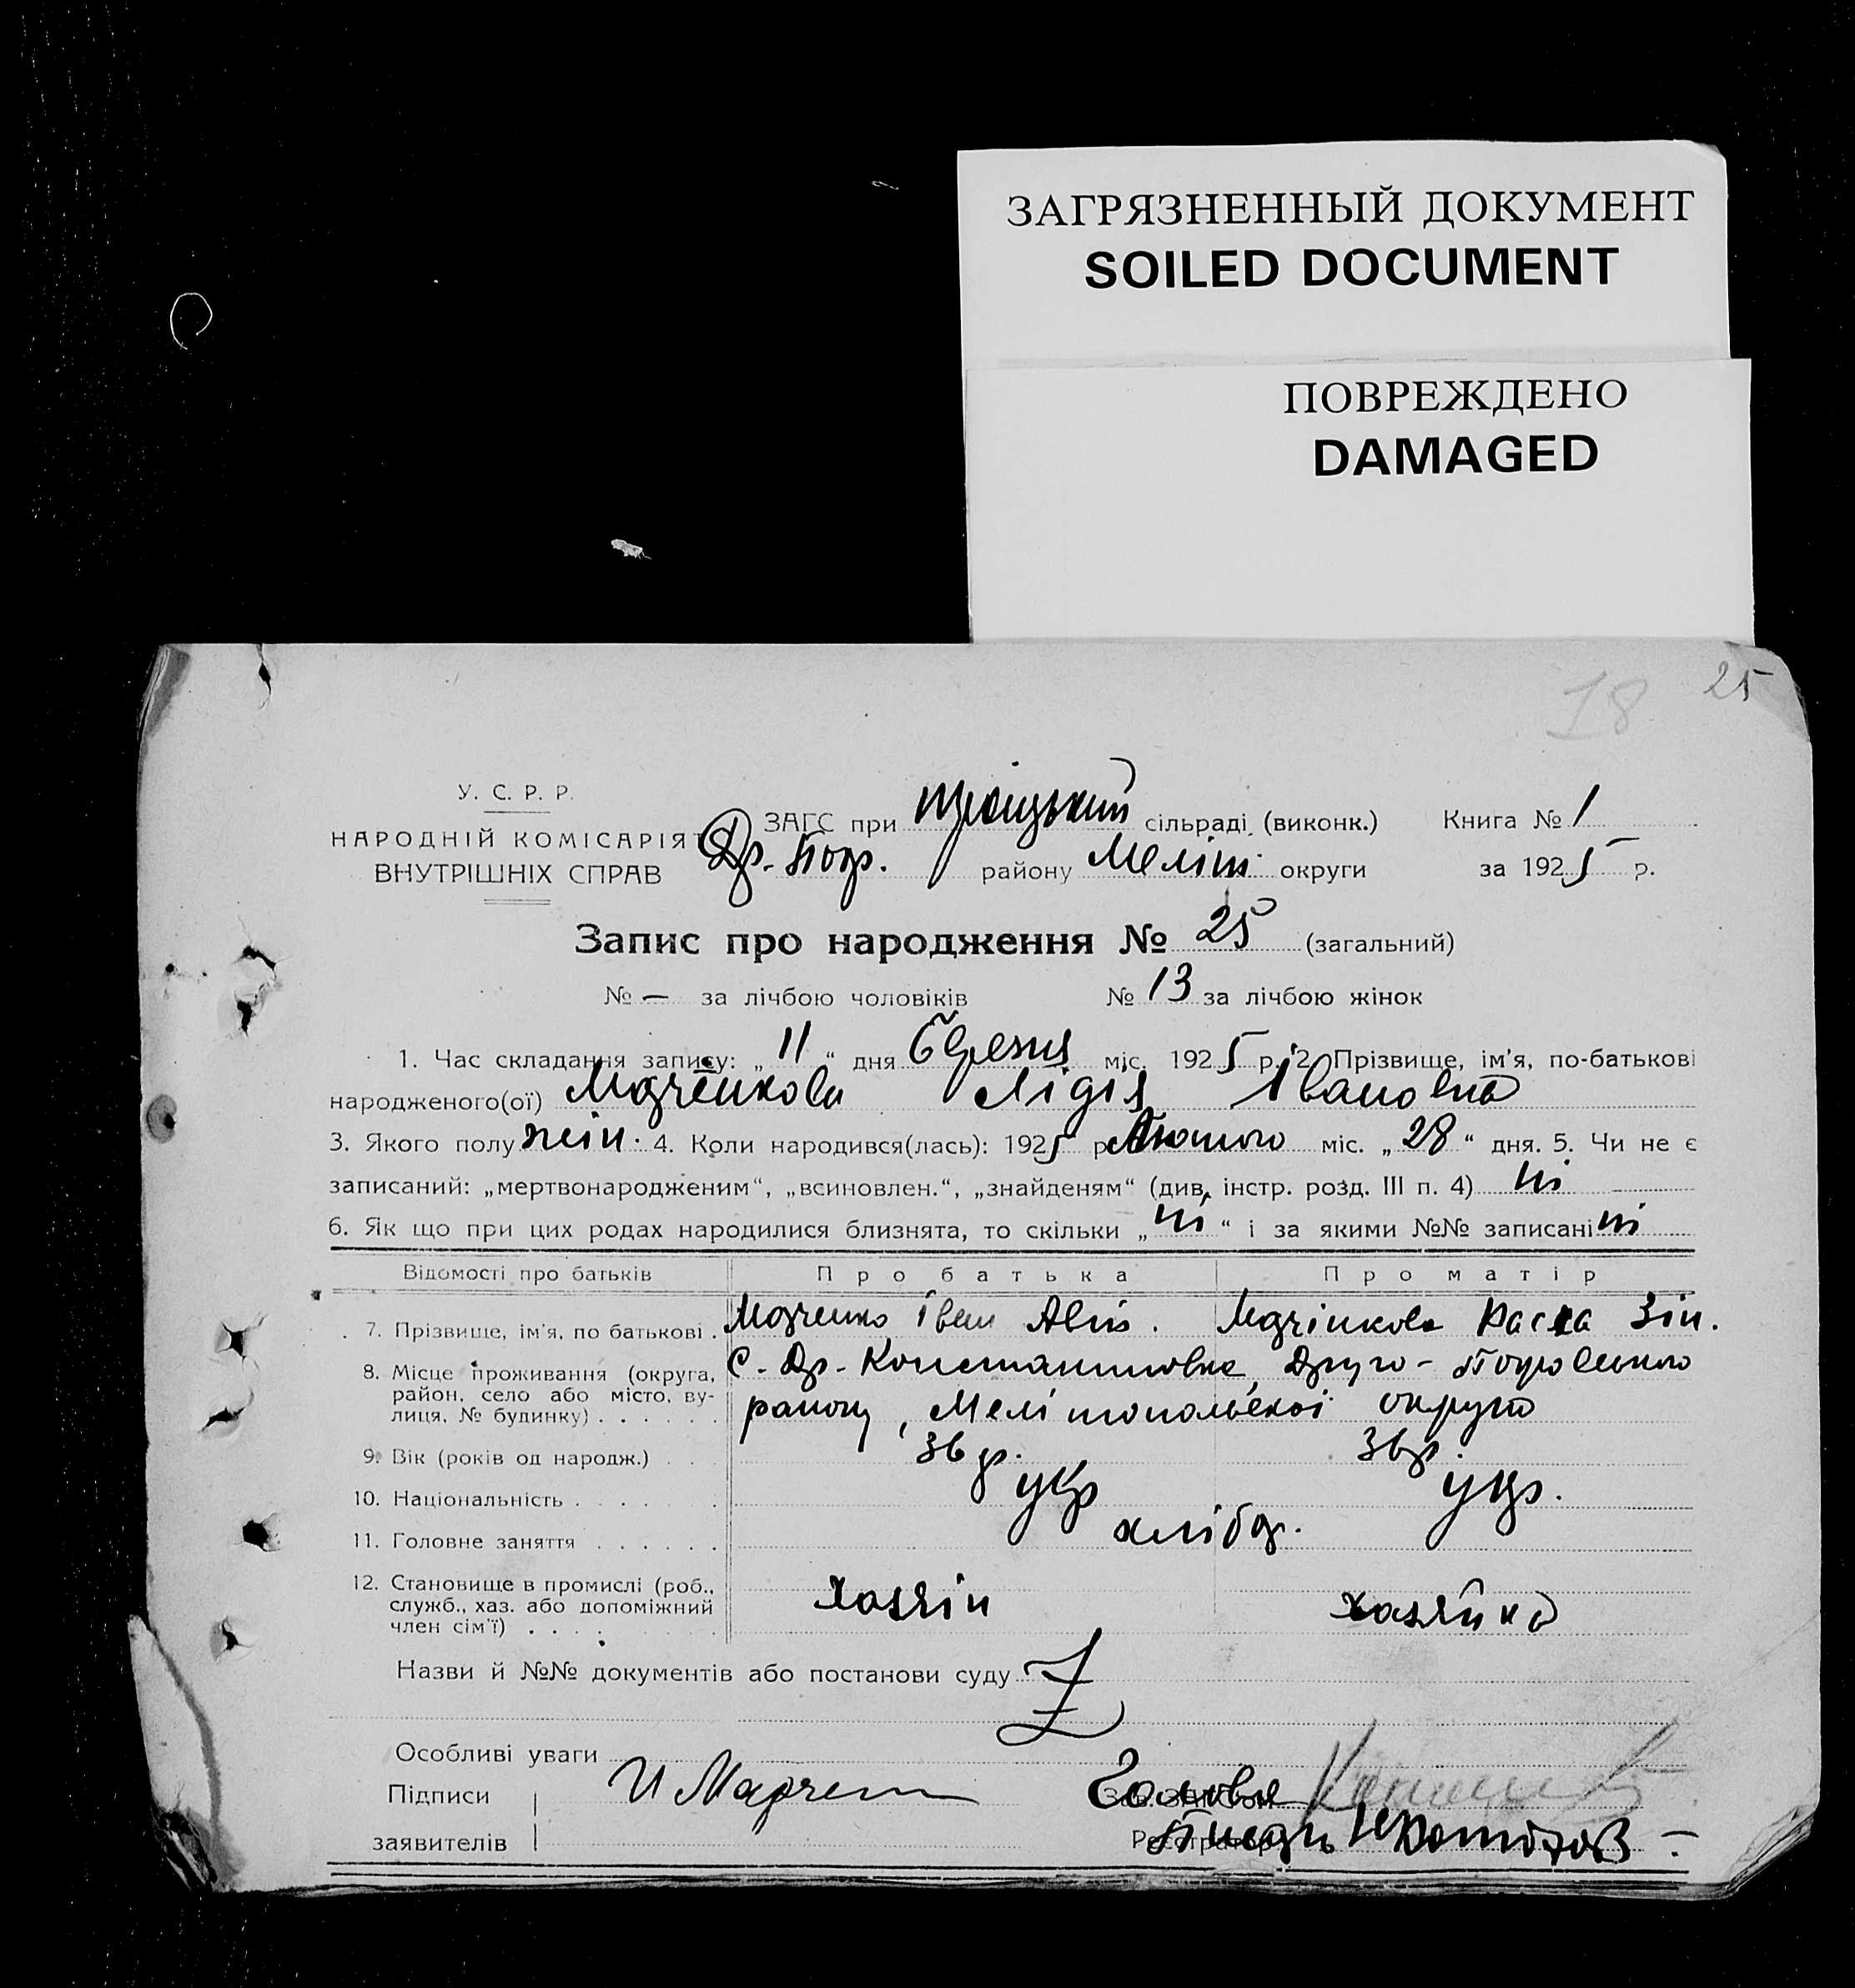 ЗАГРЯЗНЕННЫЙ ДОКУМЕНТ
SOILED DOCUMENT
ПОВРЕЖДЕНО
DAMAGED
18 25
У. С. Р. Р.
НАРОДНІЙ КОМІСАРІЯТ
ВНУТРІШНІХ СПРАВ
ЗАГС при Троіцький сільраді (виконк.) Книга № 1
Др. Покр. району Меліт. округи за 1925 р.
Запис про народження № 25 (загальний)
№ — за лічбою чоловіків № 13 за лічбою жінок
1. Час складання запису: „ 11 “ дня березня міс. 1925 р. 2. Прізвище, ім'я, по-батькові
народженого(ої) Лідія Івановна
3. Якого полу жін. 4. Коли народився(лась): 1925 р. Лютого міс. „ 28 “ дня. 5. Чи не є
записаний: „мертвонародженим“, „всиновлен.“, „знайденям“ (див. інстр. розд. III п. 4) ні
6. Як що при цих родах народилися близнята, то скільки „ ні “ і за якими №№ записані ні
Відомості про батьків Про батька Про матір
7. Прізвище, ім'я, по батькові . Іван Зін.
8. Місце проживання (округа, район, село або місто, вулиця, № будинку) . . . . . . С. Др. Константиновка, Друго-Покровського
району, Мелітопольської округи
9. Вік (років од народж.) . . . 36 р. 36 р.
10. Національність . . . . . . . укр укр.
11. Головне заняття . . . . . . хлібор.
12. Становище в промислі (роб., служб., хаз. або допоміжний член сім'ї) . . . . хазяін хазяйка
Назви й №№ документів або постанови суду Z
Особливі уваги
Підписи И Марчен Голова
заявителів